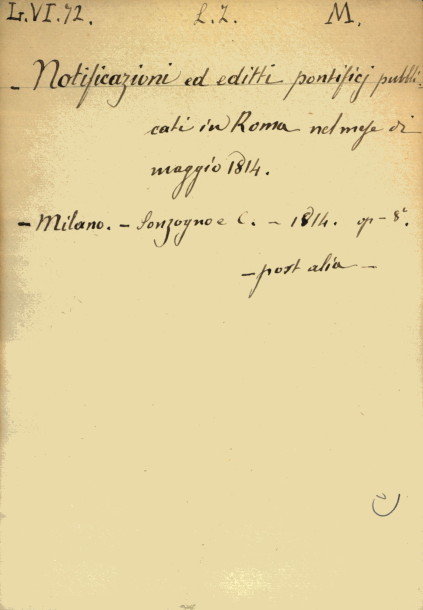 L.VI.72. L.Z. M.
- Notificazioni ed editti pontificj pubbli-
cati in Roma nel mese di
maggio 1814.
- Milano. - Sonzogno e C. - 1814. op - 8º.
- post alia -